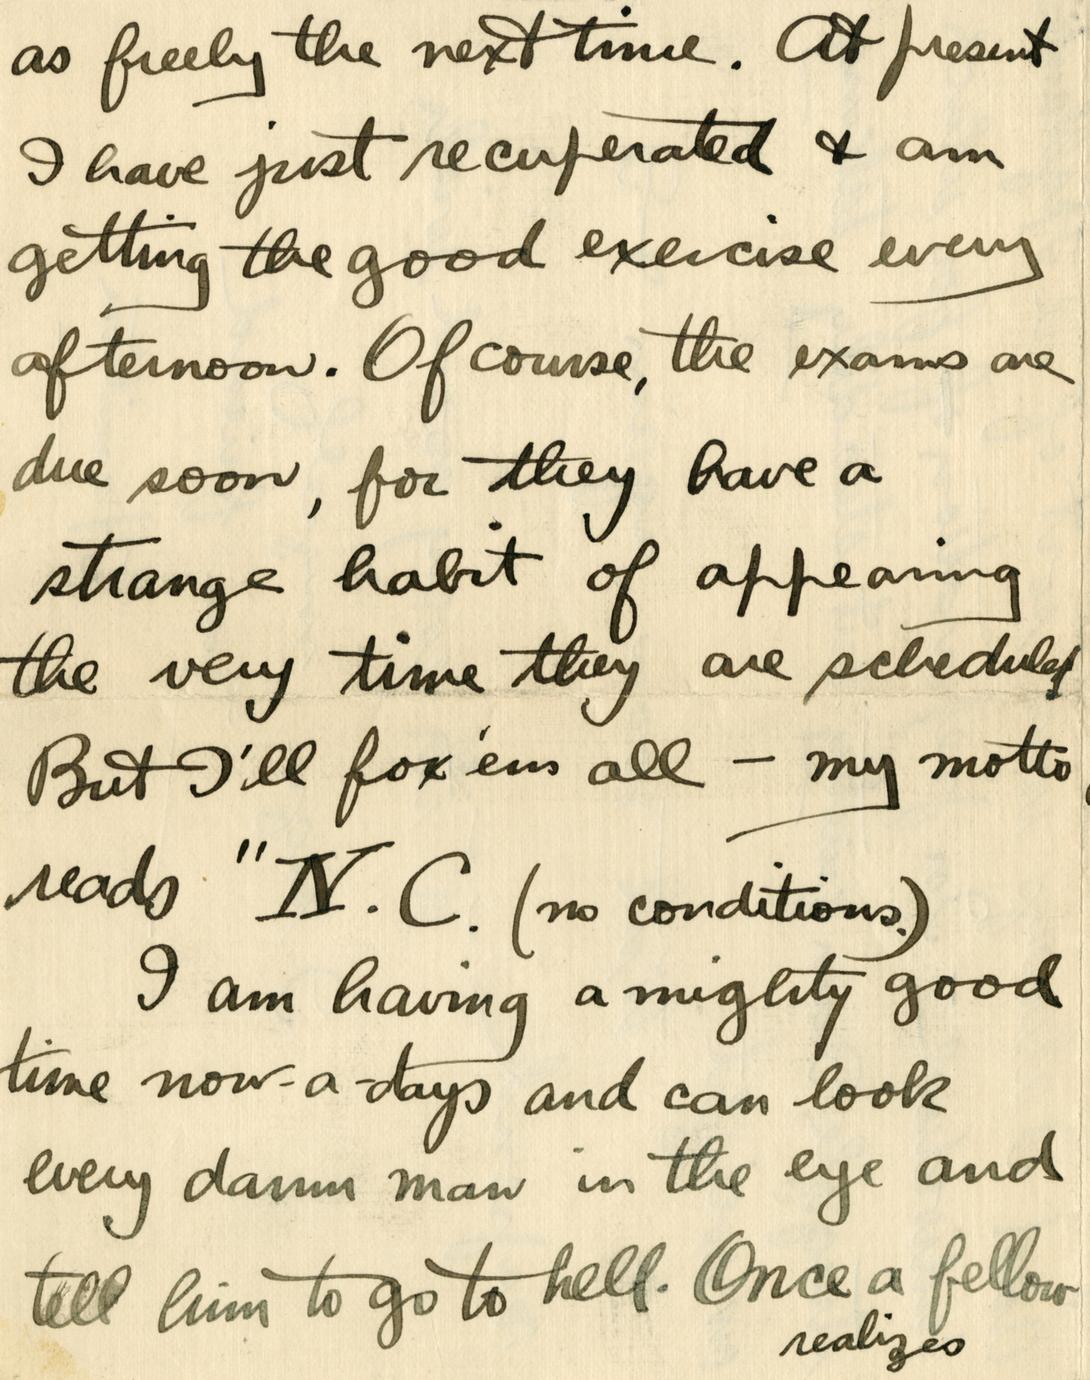 as freely the next time. At present
I have just recuperated & am
getting the good exercise every
afternoon. Of course, the exams are
due soon, for they have a
strange habit of appearing
the very time they are scheduled
But I'll fox 'em all – my motto
reads "N. C. (no conditions.)
I am having a mighty good
time now-a-days and can look
every damn man in the eye and
tell him to go to hell. Once a fellow
realizes